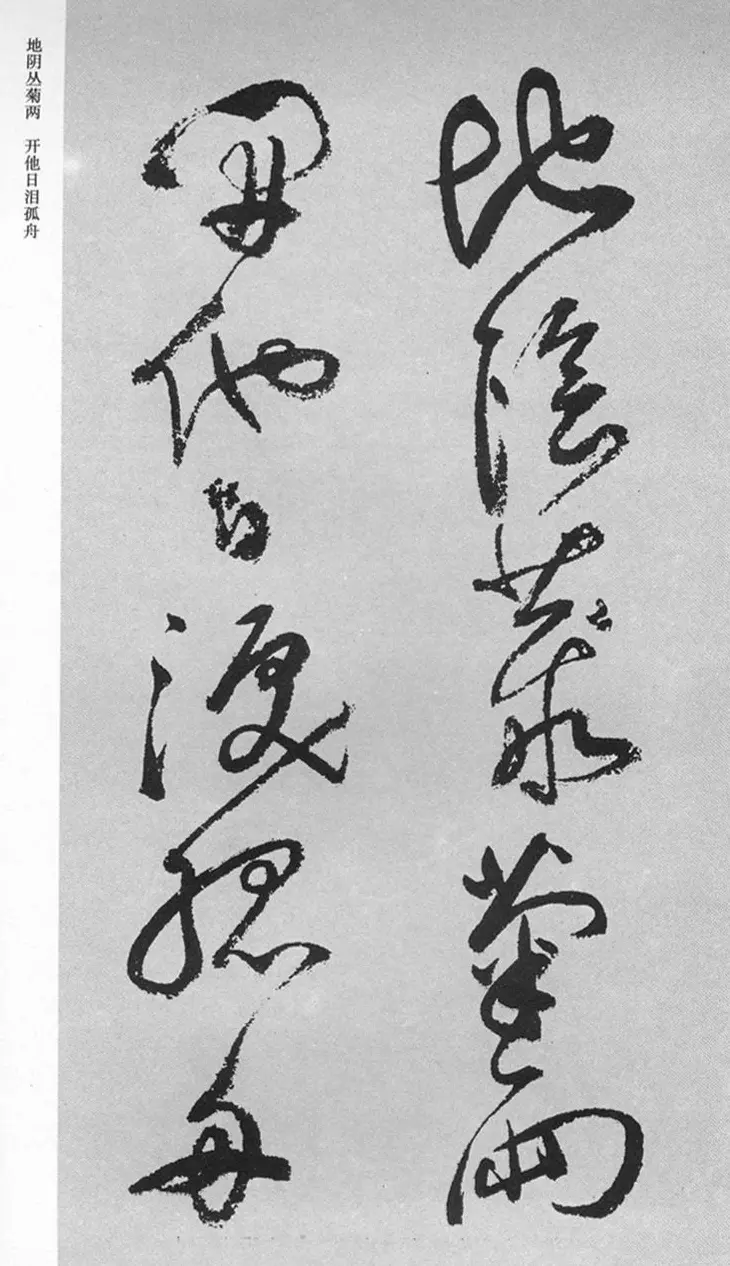 地陰叢菊兩
開他日淚孤舟
地阴丛菊两 开他日泪孤舟